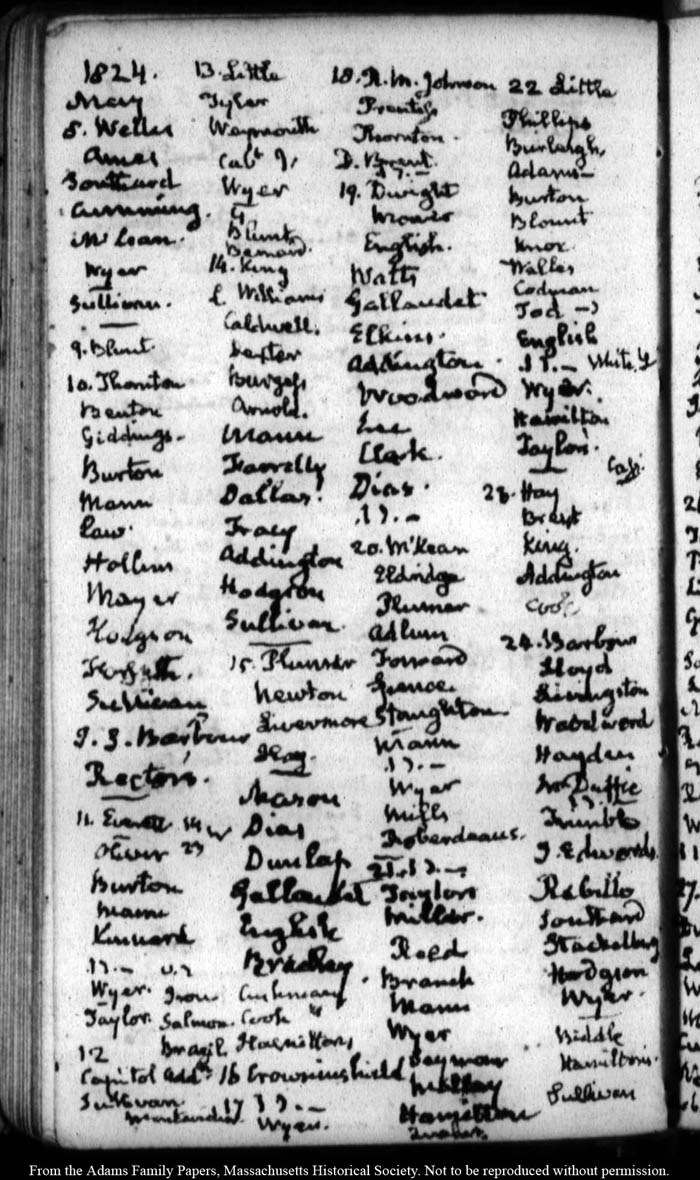 1824.
May
5. Welles
Ames
Southard
Cumming.
McLean.
Wyer
Sullivan.
9. Blunt
10. Thornton
Benton
Giddings.
Burton
Mann
Law.
Hollins
Mayer
Hodgson
Forsyth.
Sullivan
J. S. Barbour
Rectors.
11. Everett 14
Oliver 23
Burton
Mann
Kinnard
Wyer.
Taylor.
12
Capitol Addn
Sullivan
13. Little
Tyler
Weymouth
Cabt
Wyer
Blunt
Bernard.
14. King
L. Williams
Caldwell.
Dexter
Burgess
Arnold.
Mann
Farrelly
Dallas.
Tracy
Addington
Hodgson
Sullivan.
15. Plumer
Newton
Livermore
Hay.
Mason
Dias
Dunlap
Gallaudet
English
Bradley
Cushman
Cook
Salmon
Brazil
16 Crowninshield
17
Wyer.
18. R. M. Johnson
Prentiss
Thornton.
D. Brent.
19. Dwight
Mower
English.
Watts
Gallaudet
Elkins.
Addington.
Woodward
Lee
Clark.
Dias.
20. McKean
Eldridge
Plumer
Adlum
Forward
Spence
Stoughton
Mann
Wyer
Mills
Roberdeaus.
21.
Taylor
Miller.
Reed
Branch
Mann
Wyer
Mallay
Hamilton
22 Little
Phillips
Burleigh,
Adams
Burton
Blount
Knox
Welles
Codman
Tod
English
White,
Wyer.
Hamilton
Taylor.
23. Hay
Brent
King.
Addington
Cook
24. Barbour
Lloyd
Livingston
Woodward
Hayden
McDuffie
Trimble
J. Edwards.
Rebello
Southard
Stackelberg
Hodgson
Wyer.
Biddle
Hamiltons.
Sullivan
From the Adams Family Papers, Massachusetts Historical Society. Not to be reproduced without permission.